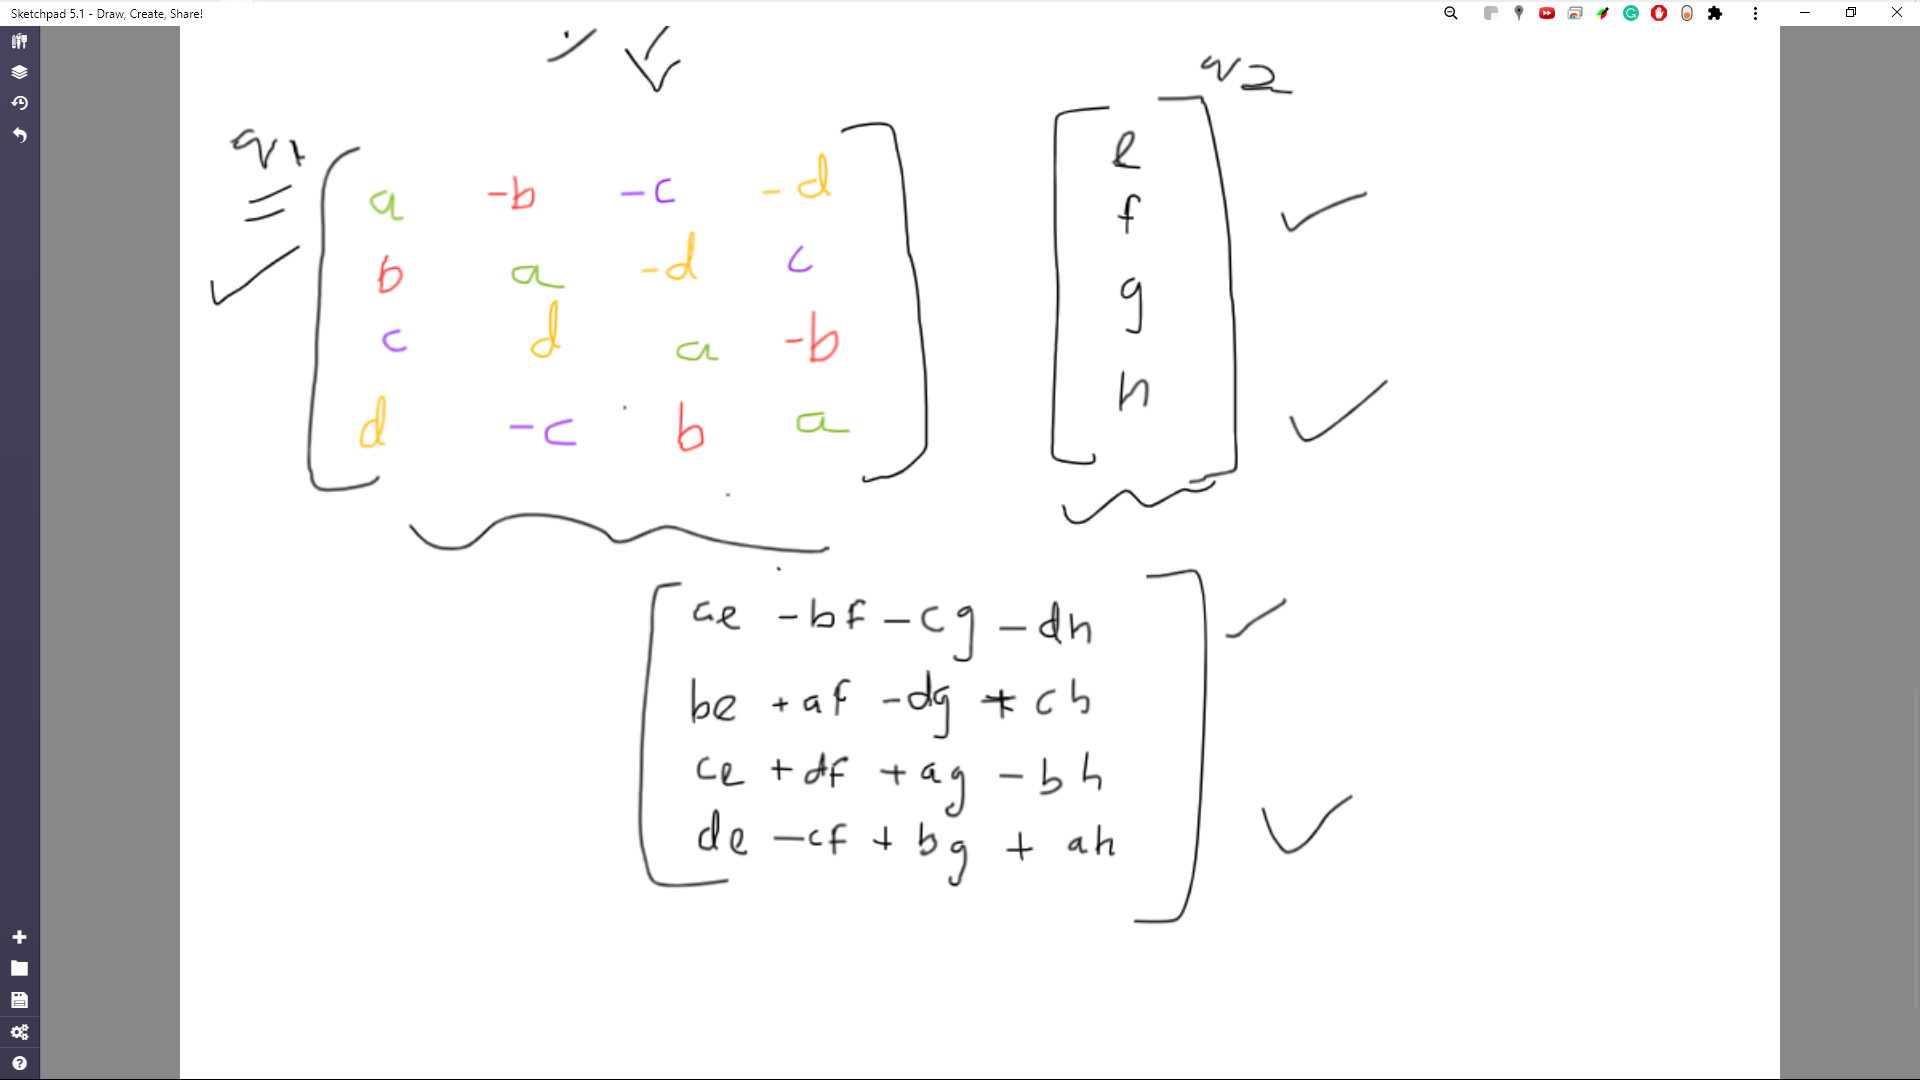 Sketchpad 5.1 - Draw, Create, Share!
q1
=
a -b -c -d
b a -d c
c d a -b
d -c b a
e
f
g
h
ae -bf -cg -dh
be +af -dg + ch
ce +df +ag -bh
de -cf + bg + ah